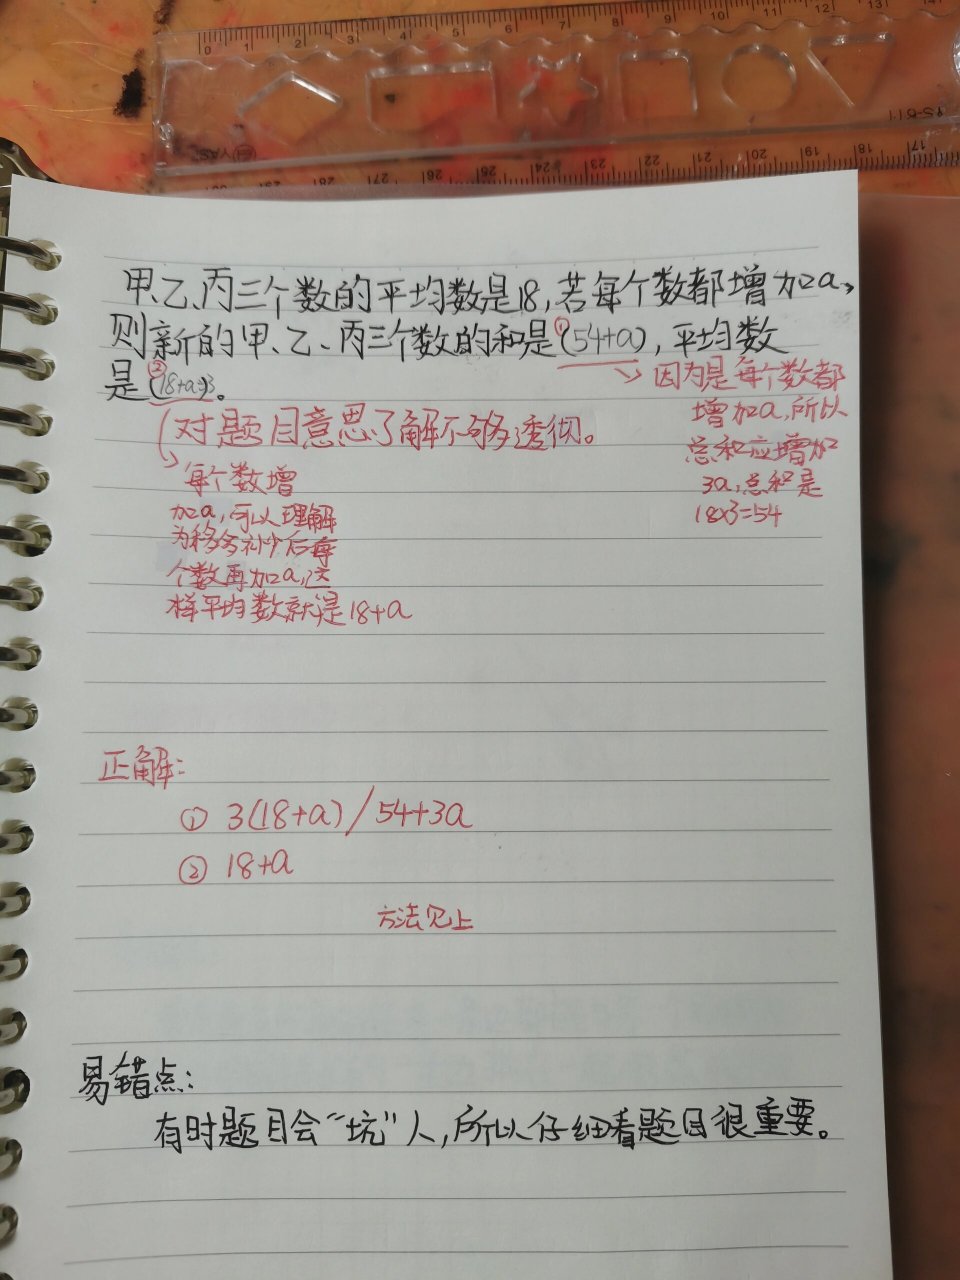 0 1 2 3 4 5 6 7 8 9 10 11 12 13 14
17 18 19 20 21 22 23 24 25 26 27 28
甲、乙、丙三个数的平均数是18,若每个数都增加a,
则新的甲、乙、丙三个数的和是①(54+a),平均数
是②(18+a÷3)。
因为是每个数都
增加a,所以
总和应增加
3a,总和是
18×3=54
对题目意思了解不够透彻。
每个数增
加a,可以理解
为移多补少后每
个数再加a,这
样平均数就是18+a
正解:
① 3(18+a)/54+3a
② 18+a
方法见上
易错点:
有时题目会“坑”人,所以仔细看题目很重要。